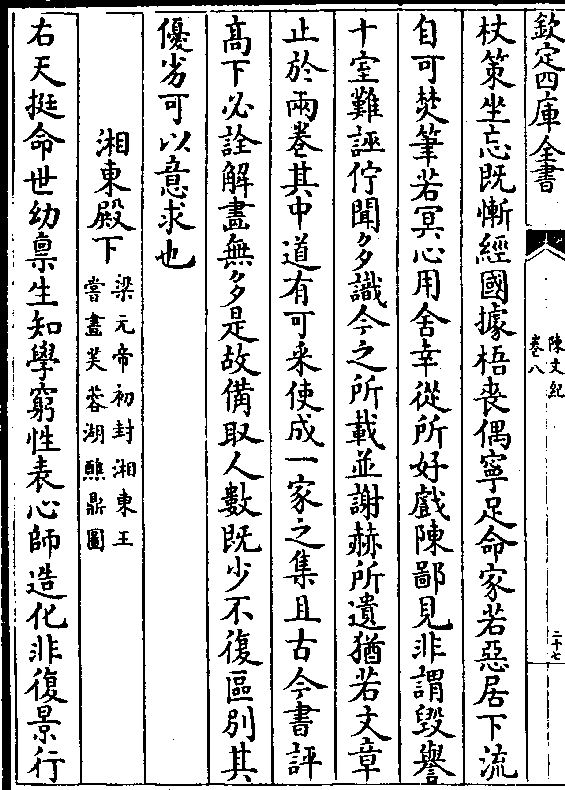 欽定四庫全書
陳文紀
卷八
二十七
杖策坐忘既慚經國據梧喪偶寧足命家若惡居下流
自可焚筆若冥心用舍幸從所好戲陳鄙見非謂毀譽
十室難誣佇聞多識今之所載並謝赫所遺猶若文章
止於兩卷其中道有可采使成一家之集且古今書評
高下必詮解畫無多是故備取人數既少不復區别其
優劣可以意求也
湘東殿下梁元帝初封湘東王
嘗畫芙蓉湖醮鼎圖
右天挺命世幼禀生知學窮性表心師造化非復景行